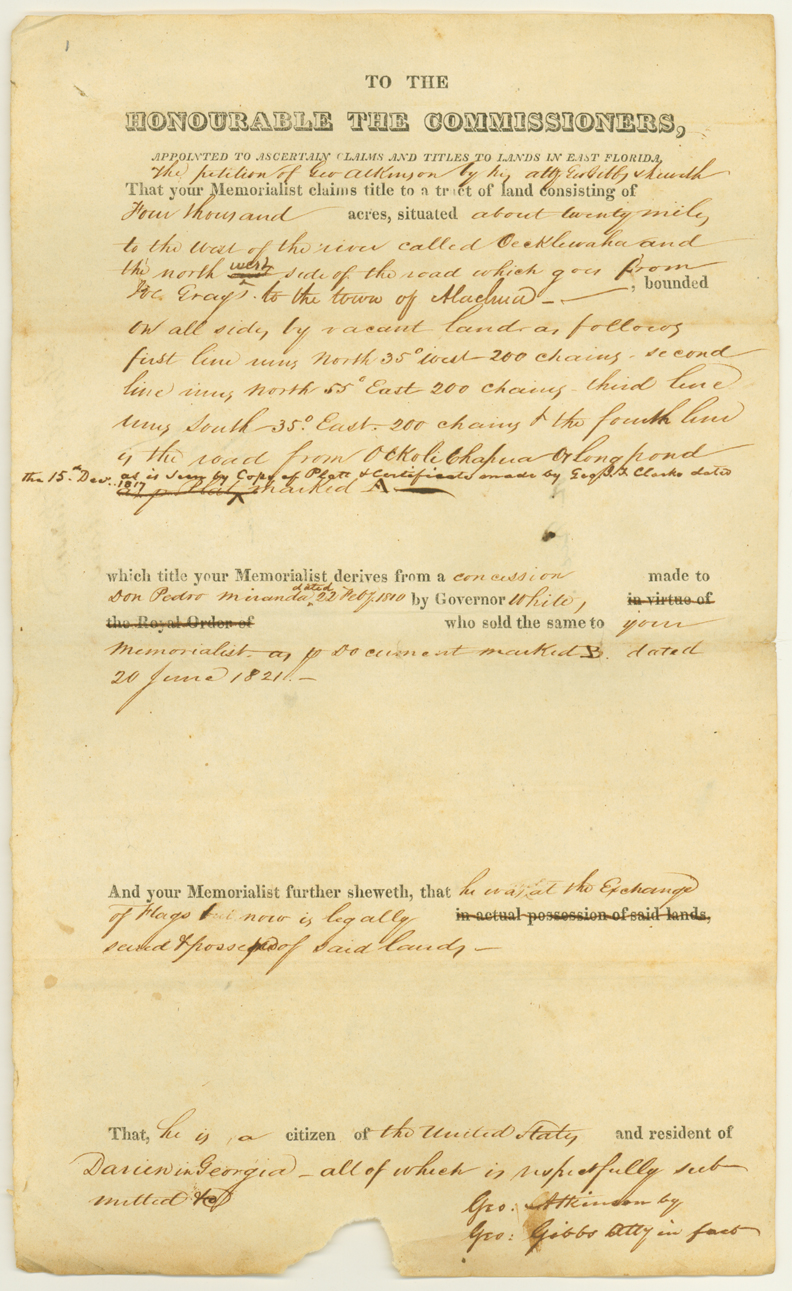 1
TO THE
HONOURABLE THE COMMISSIONERS,
APPOINTED TO ASCERTAIN CLAIMS AND TITLES TO LANDS IN EAST FLORIDA,
The petition of Geo Atkinson by his atty Geo Gibbs sheweth
That your Memorialist claims title to a tract of land consisting of
Four thousand acres, situated about twenty miles
to the west of the river called Ocklewaha and
the north west side of the road which goes from
Gray's to the town of Alachua — , bounded
on all sides by vacant land as follows
first line runs North 35° West 200 chains - second
line runs North 55° East 200 chains - third line
runs South 35° East - 200 chains & the fourth line
is the road from Ockoli Chapua or long pond
the 15th Dec. 1817 as is seen by Copy of Platt & Certificate made by Geo J. F. Clarke dated
marked A
which title your Memorialist derives from a concession made to
Don Pedro Miranda dated 22 Feby. 1810 by Governor White, in virtue of
the Royal Order of who sold the same to your
Memorialist - as p Document marked B. dated
20 June 1821. —
And your Memorialist further sheweth, that he was at the Exchange
of Flags & now is legally in actual possession of said lands,
seized & possessed of said lands —
That, he is a citizen of the United States and resident of
Darien in Georgia — all of which is respectfully sub
mitted &c
Geo: Atkinson by
Geo: Gibbs Atty in fact